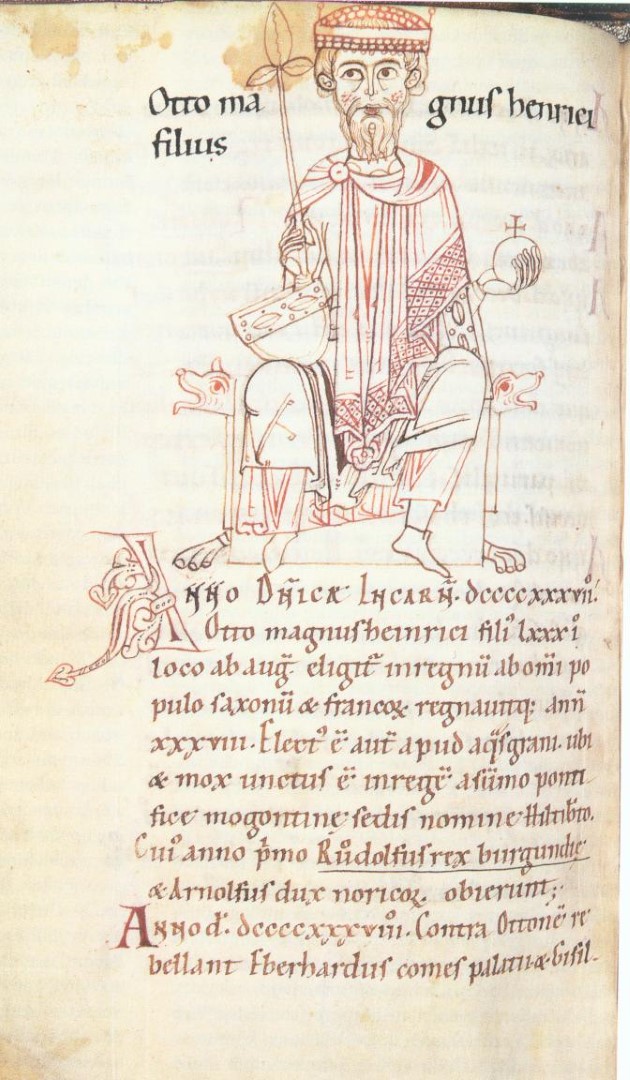 Otto magnus henrici
filius
Anno Dn̄icæ Incarn̄. dccccxxxvıı°.
Otto magnus heinrici fili᾿ lxxxı͛
loco ab aug̅ eligit᷑ in regnū ab om̄i po
pulo saxonū & francoꝝ regnauitq; ann̄
xxxviii. Elect᾿ ē aut̄ apud aq̅sgrani. ubi
& mox unctus ē in regē a sūmo ponti
fice mogontine sedis nomine Hiltib̄to.
Cui᾿ anno p̄mo Růdolfus rex burgundie
& Arnolfus dux noricoꝝ. obierunt;
Anno d͛. dccccxxxviii°. Contra Ottonē re
bellant Eberhardus comes palatii & Gisil-